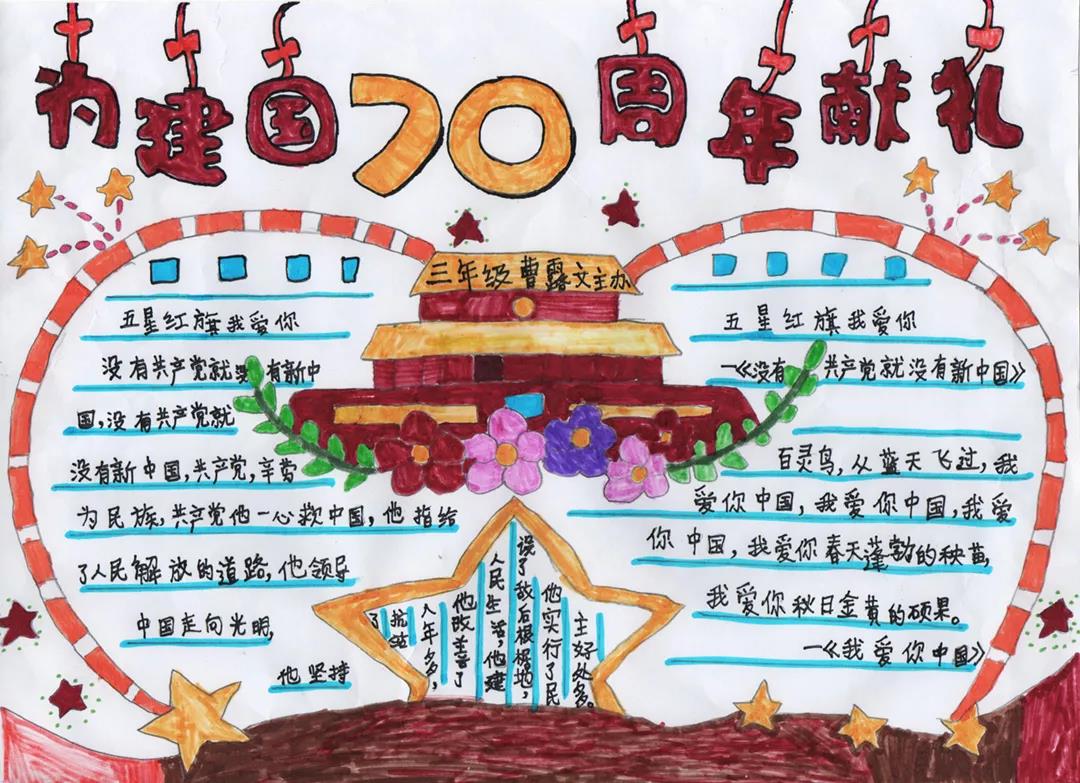 为建国70周年献礼
三年级曹露文主办
五星红旗我爱你
没有共产党就没有新中
国,没有共产党就
没有新中国,共产党,辛劳
为民族,共产党他一心救中国,他指给
了人民解放的道路,他领导
中国走向光明,
他坚持
了
抗战
八年多,
他改善了
人民生活,他建
设了敌后根据地,
他实行了民
主好处多。
五星红旗我爱你
—《没有共产党就没有新中国》
百灵鸟,从蓝天飞过,我
爱你中国,我爱你中国,我爱
你中国,我爱你春天蓬勃的秧苗,
我爱你秋日金黄的硕果。
—《我爱你中国》